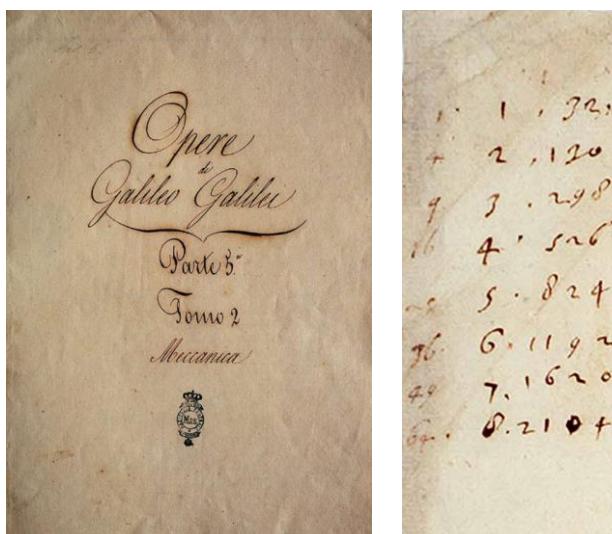 Opere
di
Galileo Galilei
Parte 5.ª
Tomo 2
Meccanica
1 . 1 . 32.
4 2 . 130
9 3 . 298
16 4 . 526
5 . 824
36 6 . 1192
49 7 . 1620
64 . 8 . 2104